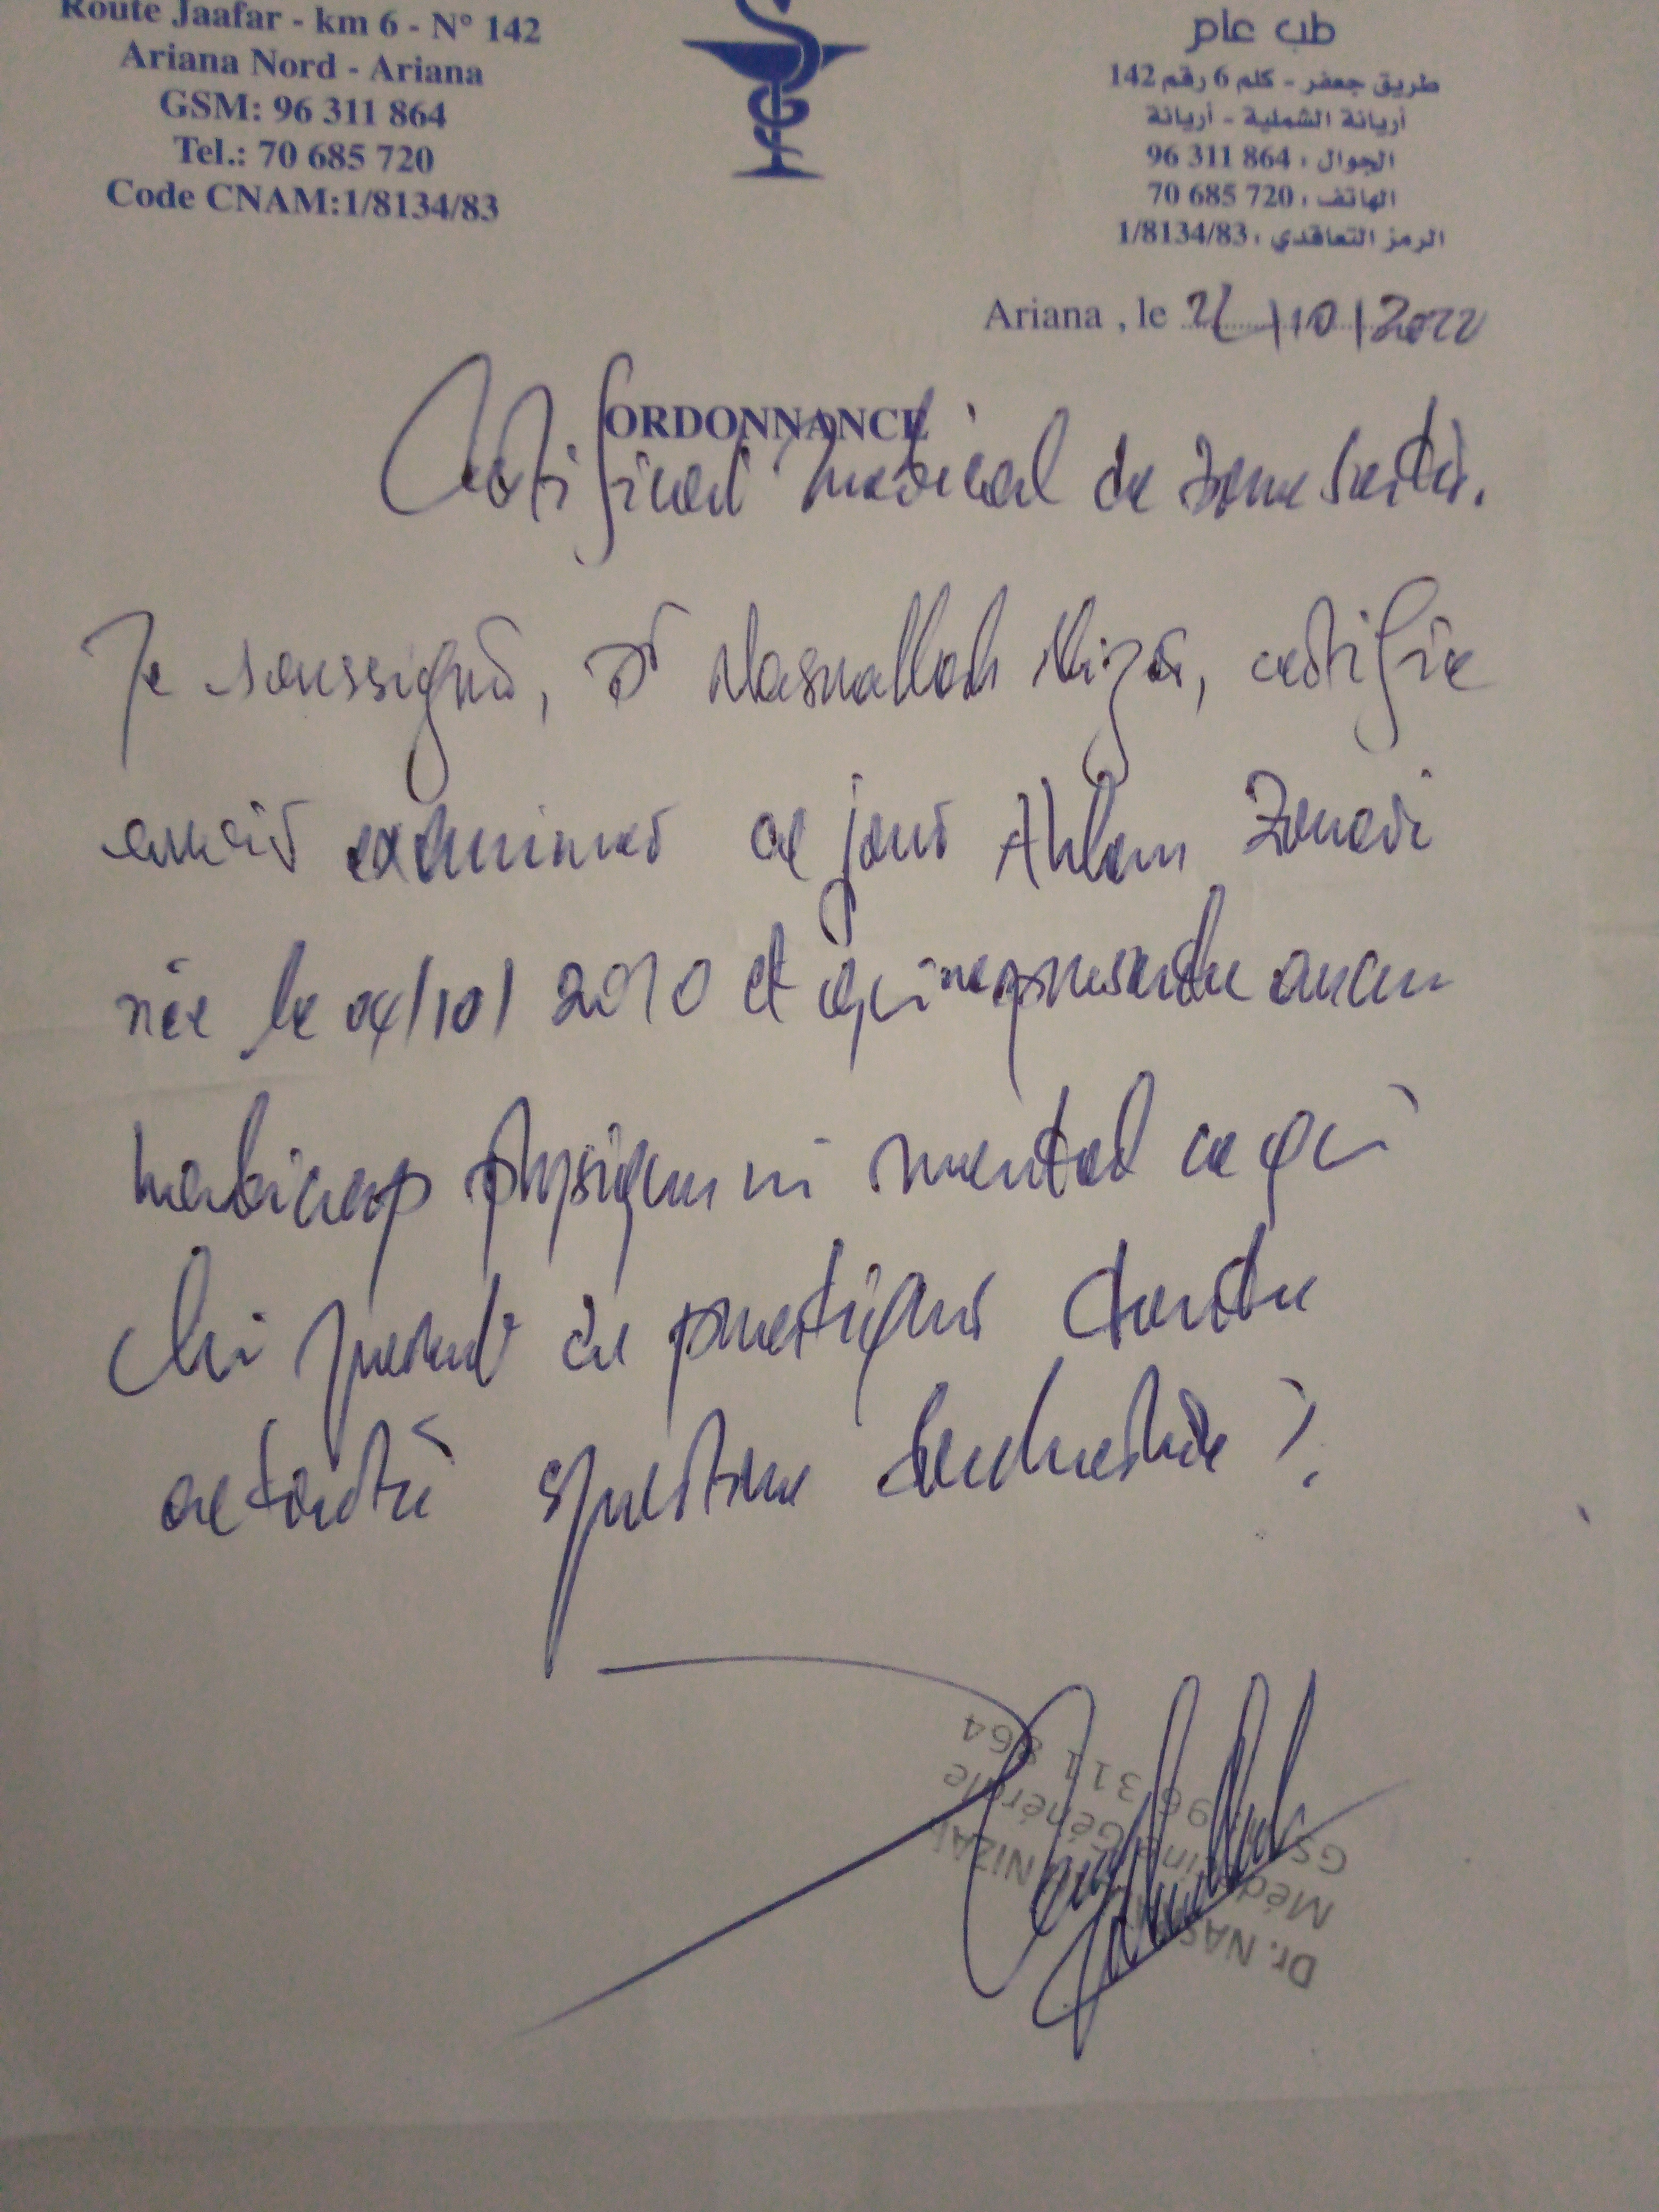 Route Jaafar - km 6 - N° 142
Ariana Nord - Ariana
GSM: 96 311 864
Tel.: 70 685 720
Code CNAM:1/8134/83
طب عام
طريق جعفر - كلم 6 رقم 142
أريانة الشمالية - أريانة
الجوال : 96 311 864
الهاتف : 70 685 720
الرمز التعاقدي : 1/8134/83
Ariana , le /10/2022
ORDONNANCE
Certificat médical de bonne santé.
Je soussigné, Dr Nasrallah Nizar, certifie
avoir examiner ce jour Ahlem
née le 04/10/2010 et qui ne présente aucun
handicap physique ni mental ce qui
lui permet de pratiquer toute
activité sportive
Dr. NAS NIZAR
Médecine Générale
GSM 96 311 864